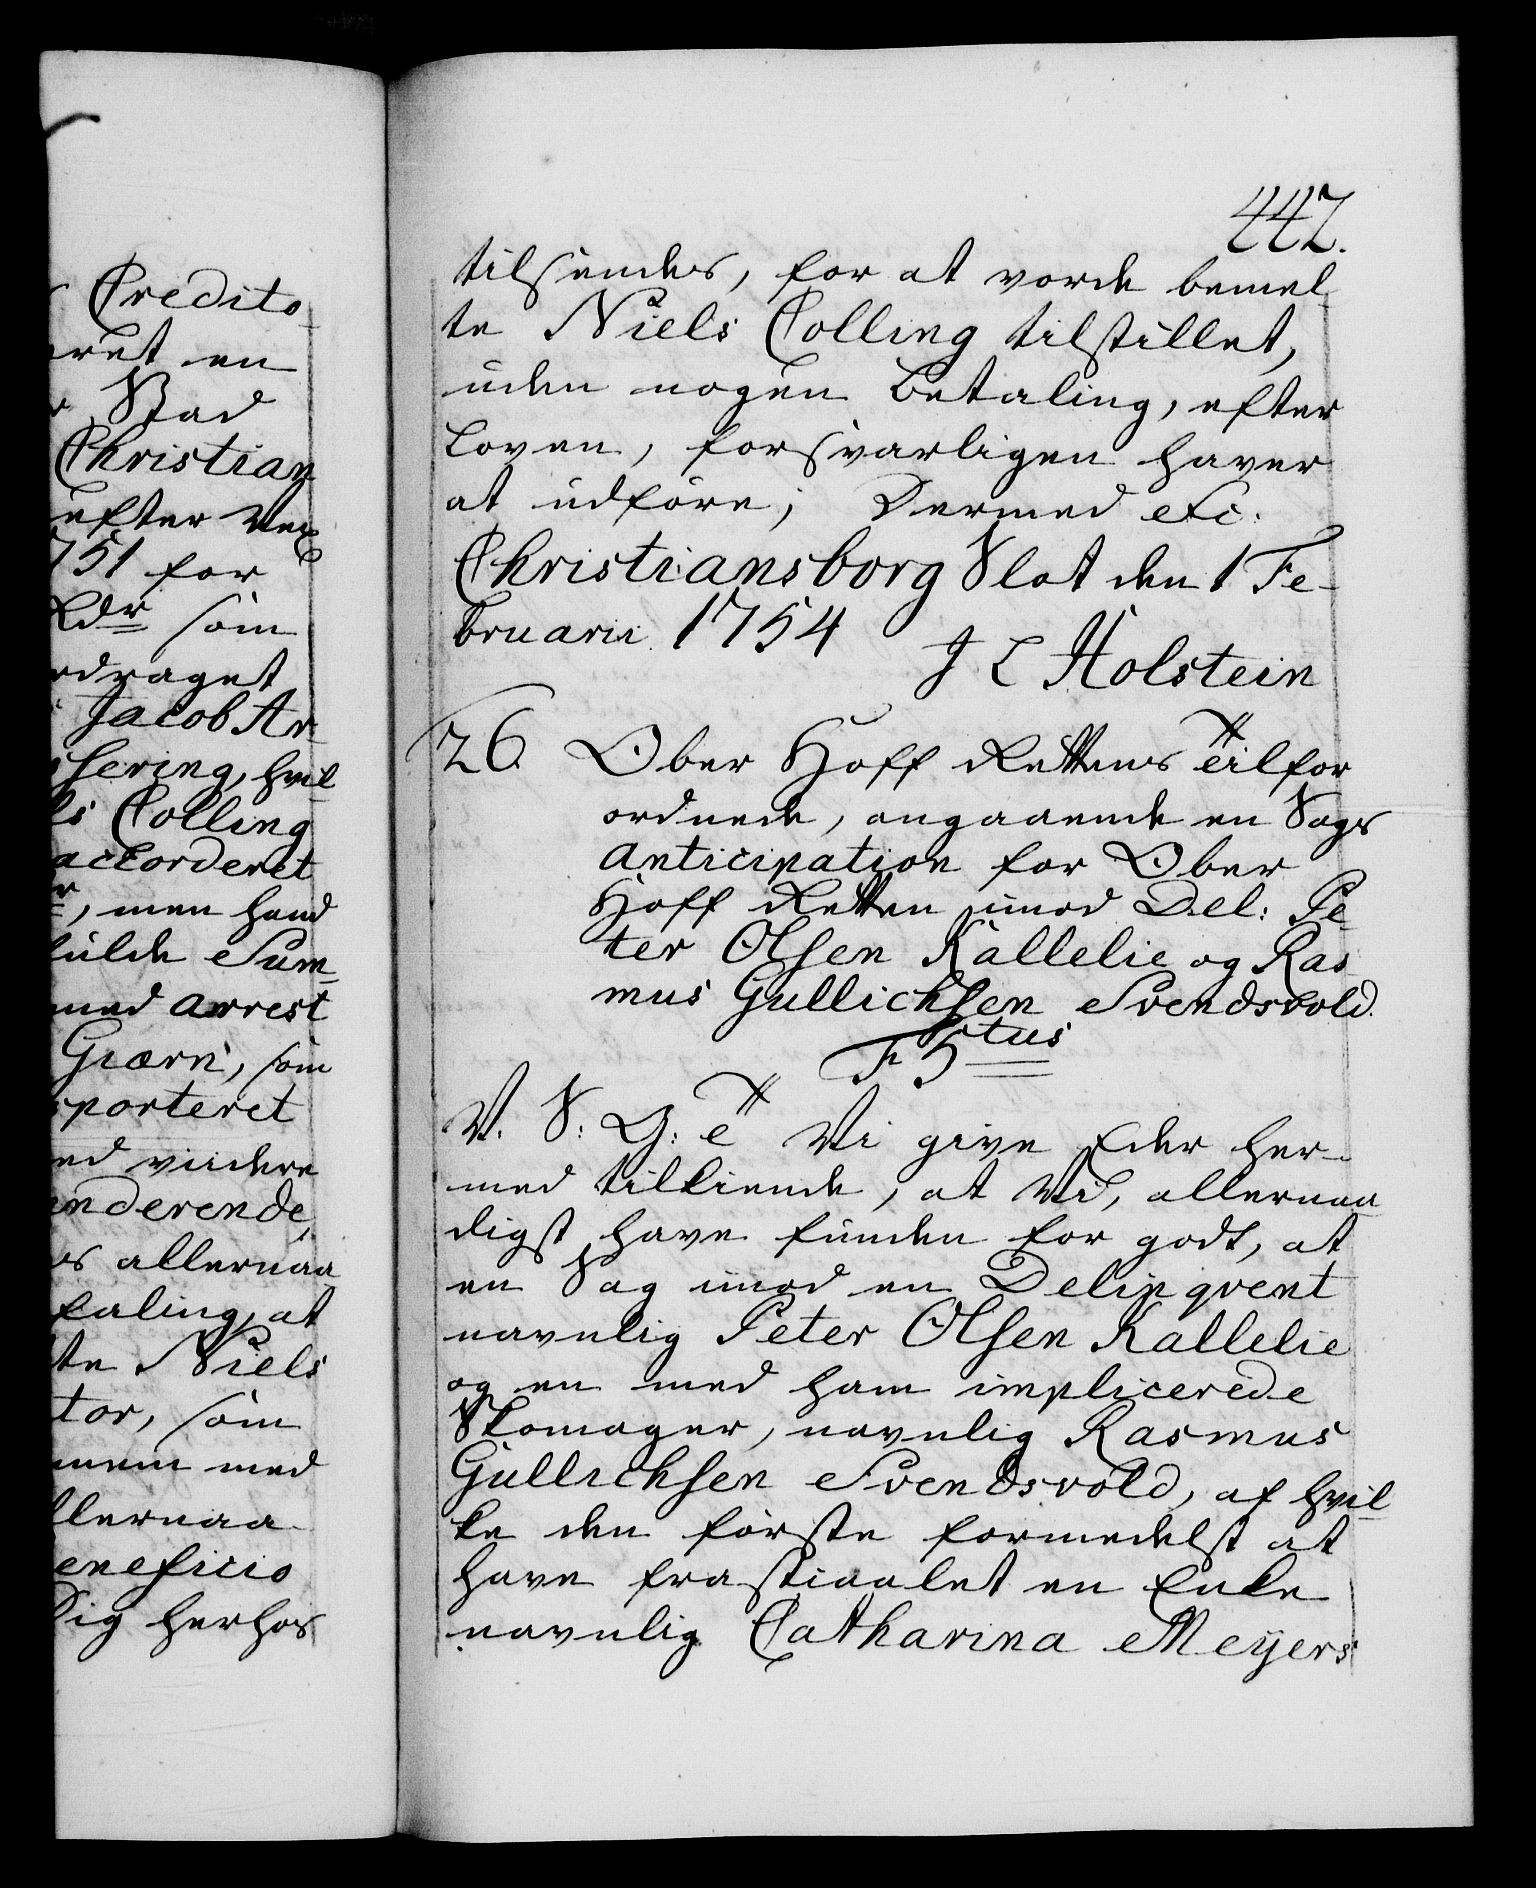 Credito-
en
Stad
Christian
efter Vex
1751 for
Rdr som
draget
Jacob Ar
sering, hvil-
Colling
accorderet
, men hand
fulde Sum-
med Arrest
Giærn, som
porteret
ed viidere
nderende,
os allernaa
taling, at
te Niels
tor, som
med
llernaa
eneficio
Sig herhos
442.
tilsendes, for at vorde bemel-
te Niels Colling tilstillet,
uden nogen betaling, efter
Loven, forsvarligen haver
at udføre; Dermed etc:
Christiansborg Slot den 1 Fe-
bruarii 1754
J L Holstein
26 Ober Hoff Rettens Tilfor
ordnede, angaaende en Sags
Anticipation for Ober
Hoff Retten imod Del: Pe-
ter Olsen Kallelie og Ras
mus Gullichsen Svendsvold.
F 5tus
V. S: G: et Vi give Eder her-
med tilkiende, at Vi, allernaa
digst have funden for godt, at
en Sag imod en Delinqvent
navnlig Peter Olsen Kallelie
og en med ham implicerede
Skomager, navnlig Rasmus
Gullichsen Svendsvold, af hvil-
ke den første formedelst at
have frastiaalet en Enke
navnlig Catharina Meyers